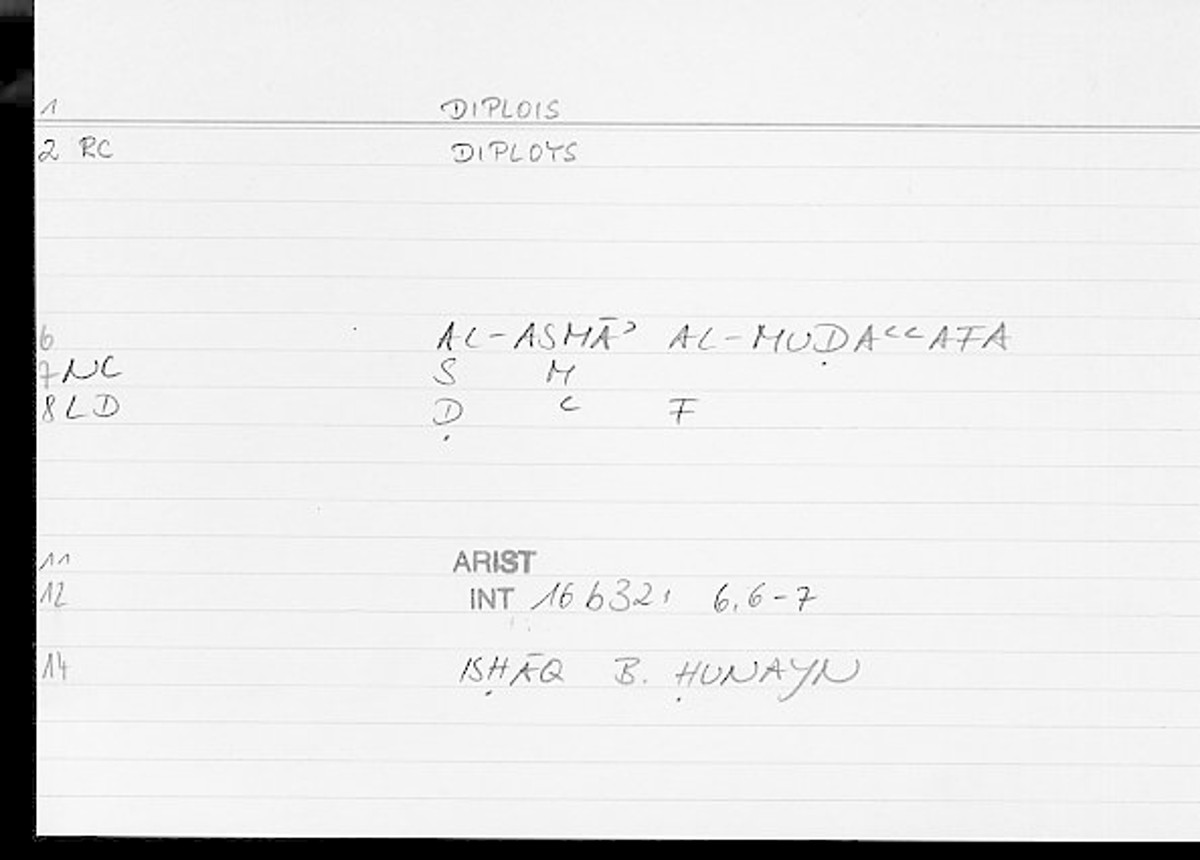 1 DIPLOIS
2 RC DIPLOYS
6 AL-ASMĀʾ AL-MUḌAʿʿAFA
7 NC S M
8 LD Ḍ ʿ F
11 ARIST
12 INT 16 b32: 6,6-7
14 ISḤĀQ B. ḤUNAYN